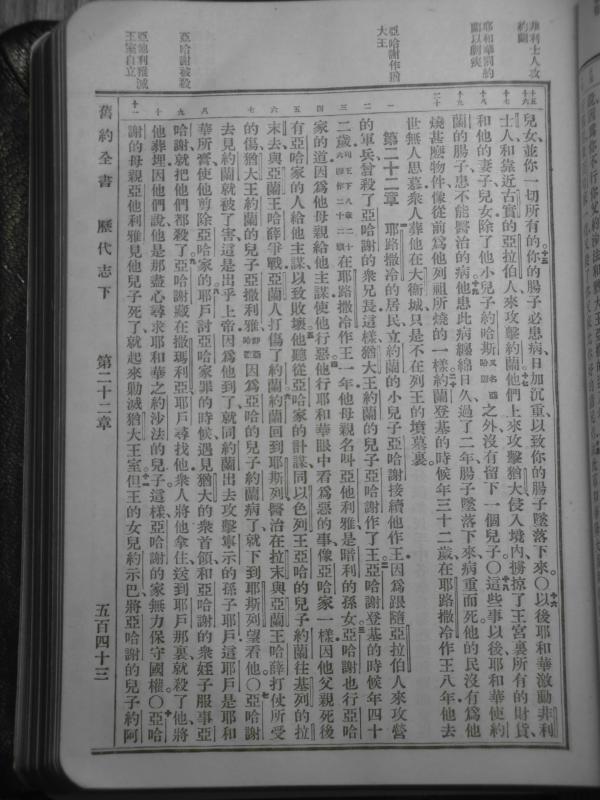 非利士人攻約蘭
耶和華罰約蘭以劇疾
亞哈謝作猶大王
亞哈謝被殺
亞他利雅滅王室自立
十五 十六 十七 十八 十九 二十
一 二 三 四 五 六 七 八 九 十 十一
兒女並你一切所有的你的腸子必患病日加沉重以致你的腸子墜落下來〇以後耶和華激動非利
士人和靠近古實的亞拉伯人來攻擊約蘭他們上來攻擊猶大侵入境內擄掠了王宮裏所有的財貨
和他的妻子兒女除了他小兒子約哈斯又名亞哈謝之外沒有留下一個兒子〇這些事以後耶和華使約
蘭的腸子患不能醫治的病他患此病纏綿日久過了二年腸子墜落下來病重而死他的民沒有爲他
燒甚麽物件像從前爲他列祖所燒的一樣約蘭登基的時候年三十二歲在耶路撒冷作王八年他去
世無人思慕衆人葬他在大衞城只是不在列王的墳墓裏
第二十二章 耶路撒冷的居民立約蘭的小兒子亞哈謝接續他作王因爲跟隨亞拉伯人來攻營
的軍兵曾殺了亞哈謝的衆兄長這樣猶大王約蘭的兒子亞哈謝作了王亞哈謝登基的時候年四十
二歲列王下八章二六節作二十二歲在耶路撒冷作王一年他母親名叫亞他利雅是暗利的孫女亞哈謝也行亞哈
家的道因爲他母親給他主謀使他行惡他行耶和華眼中看爲惡的事像亞哈家一樣因他父親死後
有亞哈家的人給他主謀以致敗壞他聽從亞哈家的計謀同以色列王亞哈的兒子約蘭往基列的拉
末去與亞蘭王哈薛爭戰亞蘭人打傷了約蘭約蘭回到耶斯列醫治在拉末與亞蘭王哈薛打仗所受
的傷猶大王約蘭的兒子亞撒利雅即亞哈謝因爲亞哈的兒子約蘭病了就下到耶斯列望看他〇亞哈謝
去見約蘭就被了害這是出乎上帝因爲他到了就同約蘭出去攻擊寧示的孫子耶戶這耶戶是耶和
華所膏使他剪除亞哈家的耶戶討亞哈家罪的時候遇見猶大的衆首領和亞哈謝的衆姪子服事亞
哈謝就把他們都殺了亞哈謝藏在撒瑪利亞耶戶尋找他衆人將他拿住送到耶戶那裏就殺了他將
他葬埋因他們說他是那盡心尋求耶和華之約沙法的兒子這樣亞哈謝的家無力保守國權〇亞哈
謝的母親亞他利雅見他兒子死了就起來勦滅猶大王室但王的女兒約示巴將亞哈謝的兒子約阿
舊約全書 歷代志下 第二十二章 五百四十三